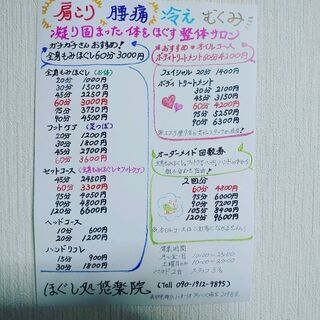 肩こり 腰痛 冷え むくみ
凝り固まった体をほぐす整体サロン
ガチガチさんおすすめ!
全身もみほぐし60分3000円
全身もみほぐし(お体)
20分 1000円
30分 1500円
45分 2250円
60分 3000円
75分 3750円
90分 4500円
フットケア(足つぼ)
20分 1200円
30分 1800円
45分 2700円
60分 3600円
セットコース(全身もみほぐし+フットケア)
45分 2450円
60分 3300円
90分 4800円
120分 6600円
ヘッドコース
60分 1200円
ハンドリフレ
15分 900円
30分 1800円
おすすめ オイルコース
ボディトリートメント60分4200円
フェイシャル 20分 1400円
ボディトリートメント
30分 2100円
45分 3150円
60分 4200円
90分 6300円
オーダーメイド回数券
2回分
60分 4800円
75分 6000円
90分 7200円
105分 8400円
120分 9600円
営業時間
ベッド2台 スタッフ3名
ほぐし処悠楽院
(Tell 090-1912-9895)